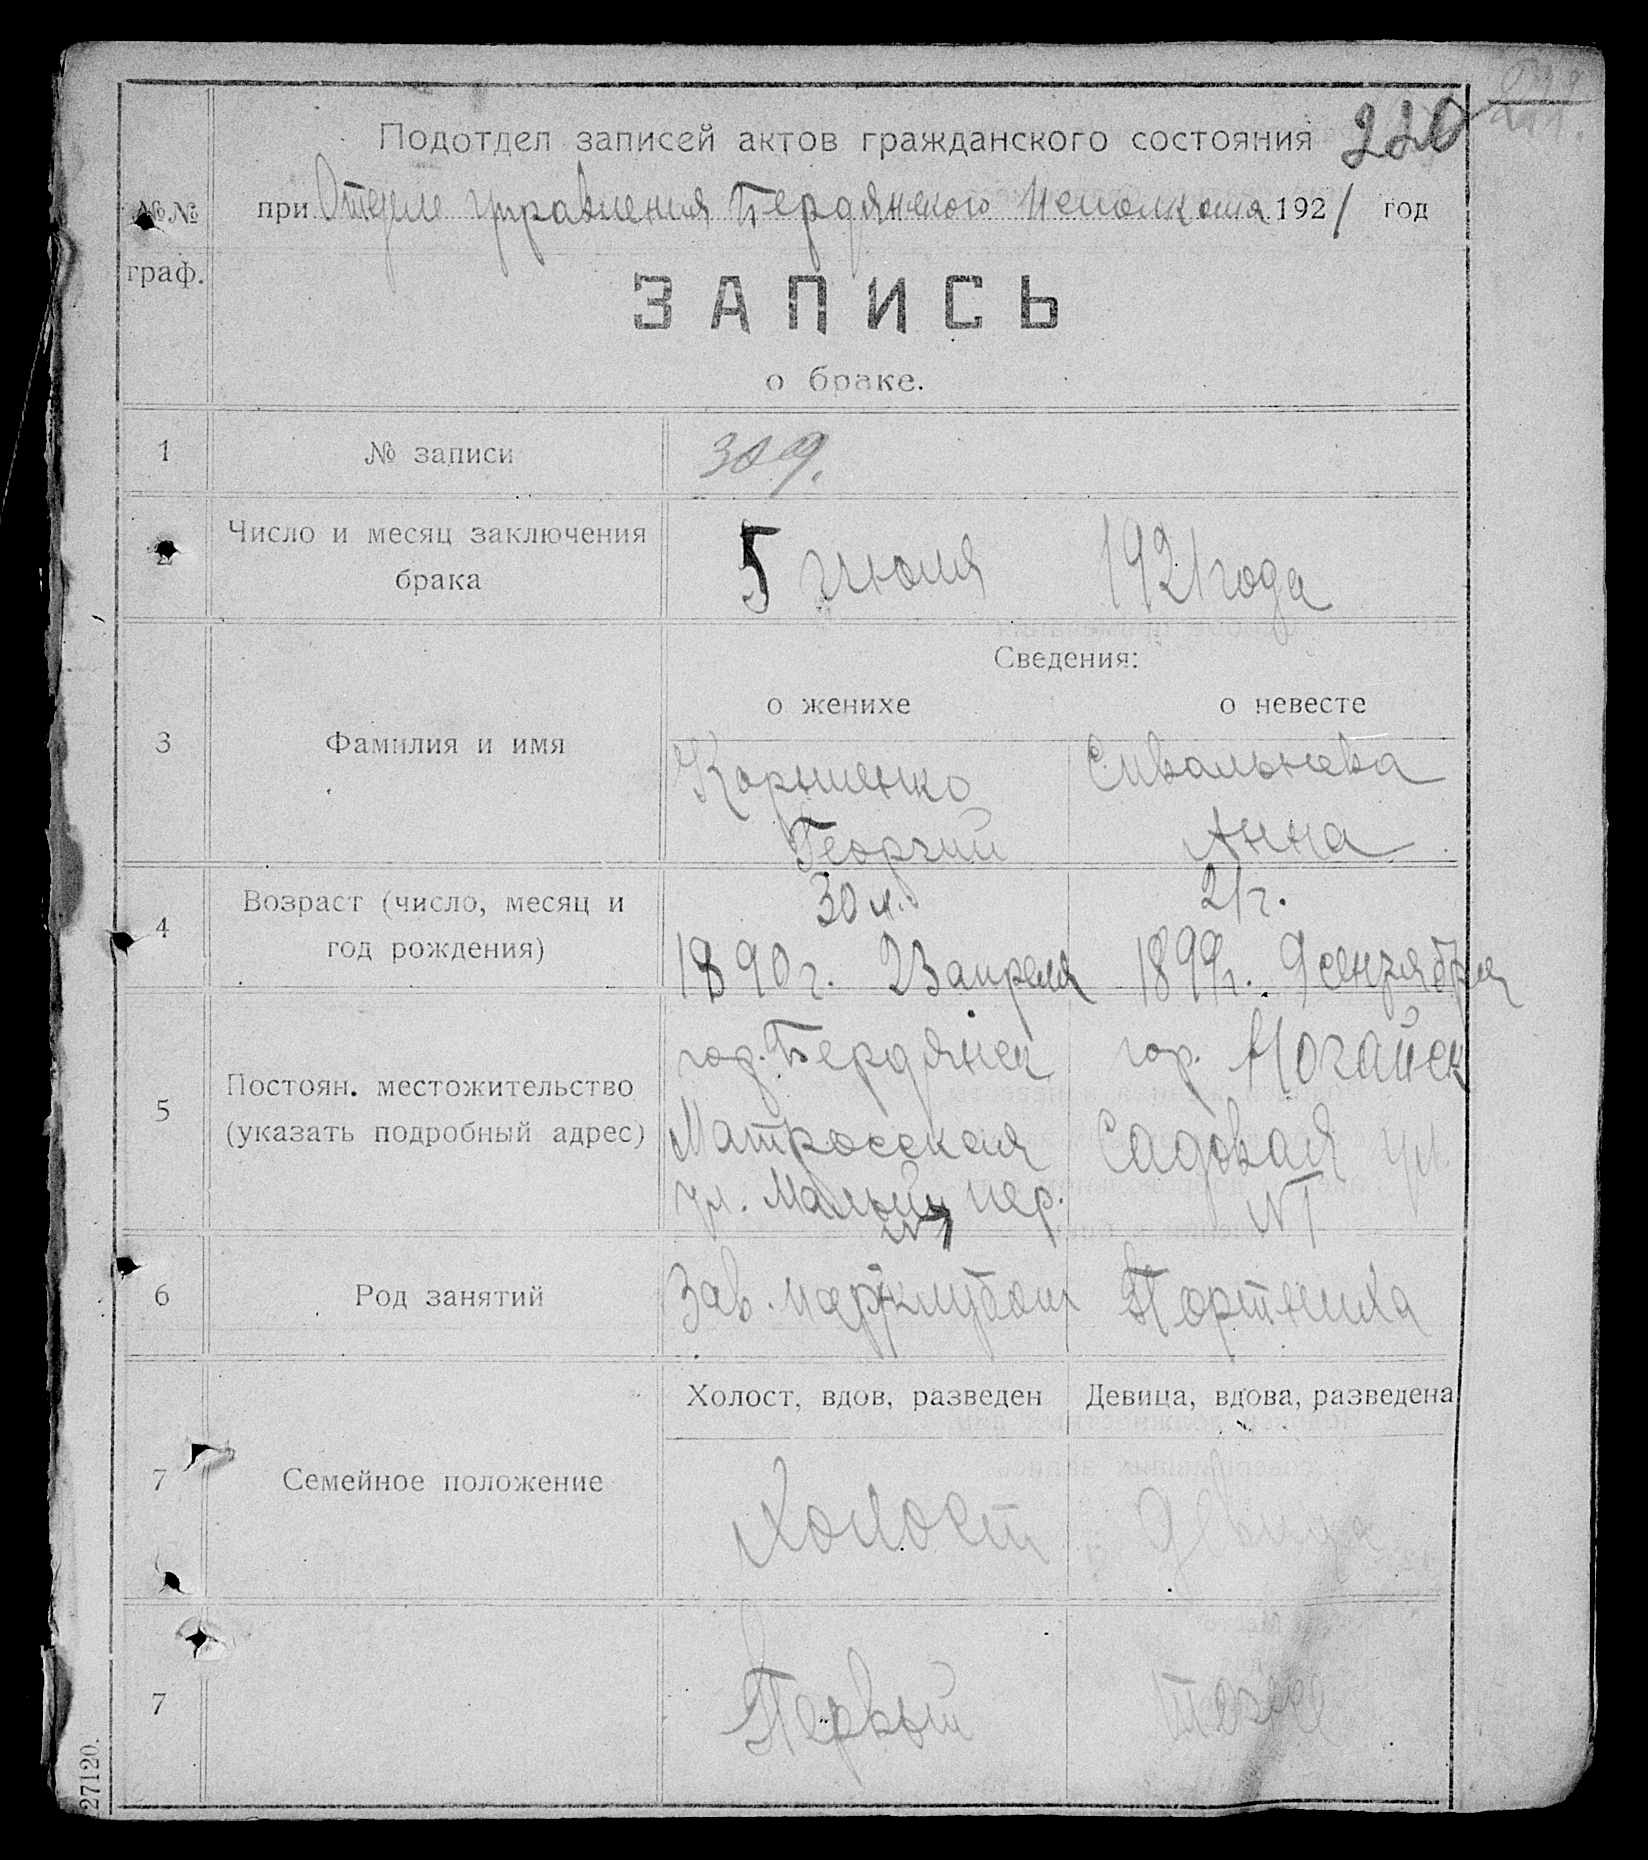 Подотдел записей актов гражданского состояния 220
№№ при Отделе управления Бердянского Исполкома 1921 год
граф.
ЗАПИСЬ
о браке.
1 № записи 309.
2 Число и месяц заключения 5 июля 1921 года
брака
Сведения:
о женихе о невесте
3 Фамилия и имя
Сивальнева
Георгий Анна
Возраст (число, месяц и 30 л. 21 г.
4
год рождения) 1890 г. 23 апреля 1899 г. 9 сентября
гор. Бердянск гор. Ногайск
5 Постоян. местожительство
(указать подробный адрес) Матросская Садовая ул.
ул. Малый пер. №1
№1
6 Род занятий Зав. партклубом Портниха
Холост, вдов, разведен Девица, вдова, разведена
7 Семейное положение Холост девица
7 Первый тоже
27120.